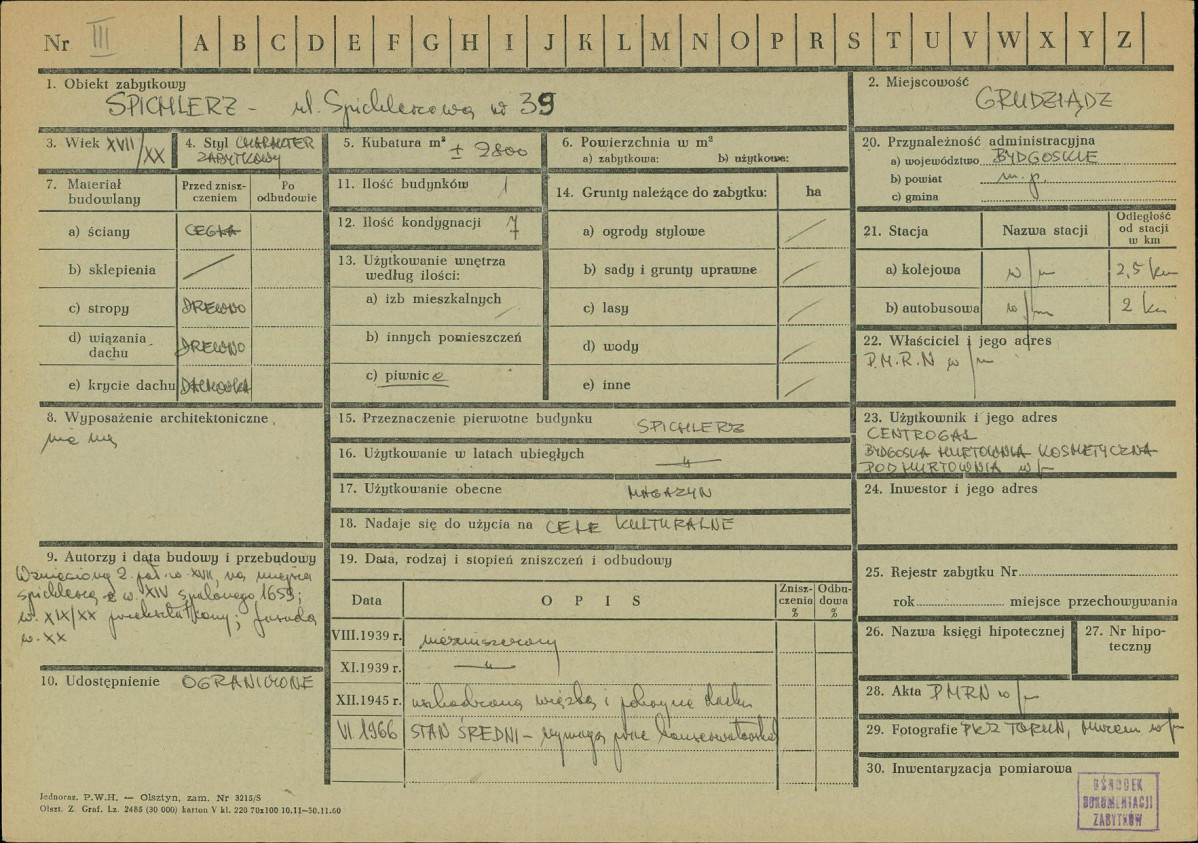 Nr III A B C D E F G H I J K L M N O P R S T U V W X Y Z
1. Obiekt zabytkowy
SPICHLERZ - ul. Spichlerzowa nr 39
2. Miejscowość
GRUDZIĄDZ
3. Wiek XVII/XX
4. Styl CHARAKTER
ZABYTKOWY
5. Kubatura m³ ± 2800
6. Powierzchnia w m²
a) zabytkowa: b) użytkowe:
20. Przynależność administracyjna
a) województwo BYDGOSKIE
b) powiat m. p.
c) gmina
7. Materiał
budowlany
Przed znisz-
czeniem
Po
odbudowie
a) ściany CEGŁA
b) sklepienia /
c) stropy DREWNO
d) wiązania
dachu DREWNO
e) krycie dachu DACHÓWKA
11. Ilość budynków 1
12. Ilość kondygnacji 7
13. Użytkowanie wnętrza
według ilości:
a) izb mieszkalnych /
b) innych pomieszczeń
c) piwnice
14. Grunty należące do zabytku: ha
a) ogrody stylowe /
b) sady i grunty uprawne /
c) lasy /
d) wody /
e) inne /
21. Stacja Nazwa stacji
Odległość
od stacji
w km
a) kolejowa w/m 2,5 km
b) autobusowa w/m 2 km
22. Właściciel i jego adres
P.M.R.N w/m
8. Wyposażenie architektoniczne
nie ma
15. Przeznaczenie pierwotne budynku SPICHLERZ
16. Użytkowanie w latach ubiegłych —"—
17. Użytkowanie obecne MAGAZYN
18. Nadaje się do użycia na CELE KULTURALNE
23. Użytkownik i jego adres
CENTROGAL
BYDGOSKA HURTOWNIA KOSMETYCZNA
PODHURTOWNIA w/m
24. Inwestor i jego adres
9. Autorzy i data budowy i przebudowy
Wzniesiony 2. poł. w. XVII, na miejscu
spichlerza z w. XIV spalonego 1659;
w. XIX/XX przekształcony; fasada
w. XX
10. Udostępnienie OGRANICZONE
19. Data, rodzaj i stopień zniszczeń i odbudowy
Data O P I S
Znisz-
czenia
%
Odbu-
dowa
%
VIII.1939 r. niezniszczony
XI.1939 r. —"—
XII.1945 r. uszkodzona więźba i pokrycie dachu
VI 1966 STAN ŚREDNI - wymaga prac konserwatorskich
25. Rejestr zabytku Nr
rok miejsce przechowywania
26. Nazwa księgi hipotecznej
27. Nr hipo-
teczny
28. Akta PMRN w/m
29. Fotografie PKZ TORUŃ, Muzeum w/m
30. Inwentaryzacja pomiarowa
Jednoraz. P.W.H. — Olsztyn, zam. Nr 3215/S
Olszt. Z. Graf. Lz. 2485 (30 000) karton V kl. 220 70x100 10.11—30.11.60
OŚRODEK
DOKUMENTACJI
ZABYTKÓW